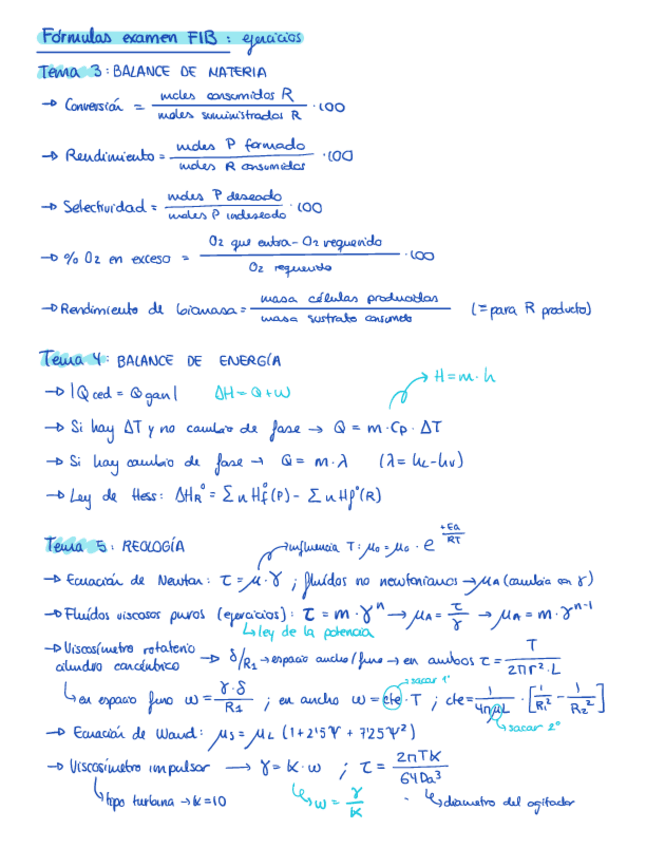 Fórmulas examen FIB: ejercicios
Tema 3: BALANCE DE MATERIA
→ Conversión = moles consumidos R / moles suministrados R · 100
→ Rendimiento = moles P formado / moles R consumidos · 100
→ Selectividad = moles P deseado / moles P indeseado · 100
→ % O2 en exceso = O2 que entra - O2 requerido / O2 requerido · 100
→ Rendimiento de biomasa = masa células producidas / masa sustrato consumido (= para R producto)
Tema 4: BALANCE DE ENERGÍA
→ |Qced = Qgan| ΔH = Q + W → H = m · h
→ Si hay ΔT y no cambio de fase → Q = m · Cp · ΔT
→ Si hay cambio de fase → Q = m · λ (λ = hL - hv)
→ Ley de Hess: ΔHR° = Σ n Hf°(P) - Σ n Hf°(R)
Tema 5: REOLOGÍA → influencia T: μo = μo · e^(+Ea/RT)
→ Ecuación de Newton: τ = μ · γ ; fluídos no newtonianos → μA (cambia con γ)
→ Fluídos viscosos puros (ejercicios): τ = m · γ^n → μA = τ/γ → μA = m · γ^(n-1)
↳ ley de la potencia
→ Viscosímetro rotatorio cilindro concéntrico → δ/R1 → espacio ancho/fino → en ambos τ = T / 2πr² · L
↳ en espacio fino ω = γ · δ / R1 ; en ancho ω = cte · T ; cte = 1/4πμL · [1/R1² - 1/R2²]
→ sacar 1°
↳ sacar 2°
→ Ecuación de Wand: μS = μL (1 + 2'5Ψ + 7'25Ψ²)
→ Viscosímetro impulsor → γ = k · ω ; τ = 2πTk / 64Da³
↳ tipo turbina → k = 10 ↳ ω = γ/k ↳ diametro del agitador